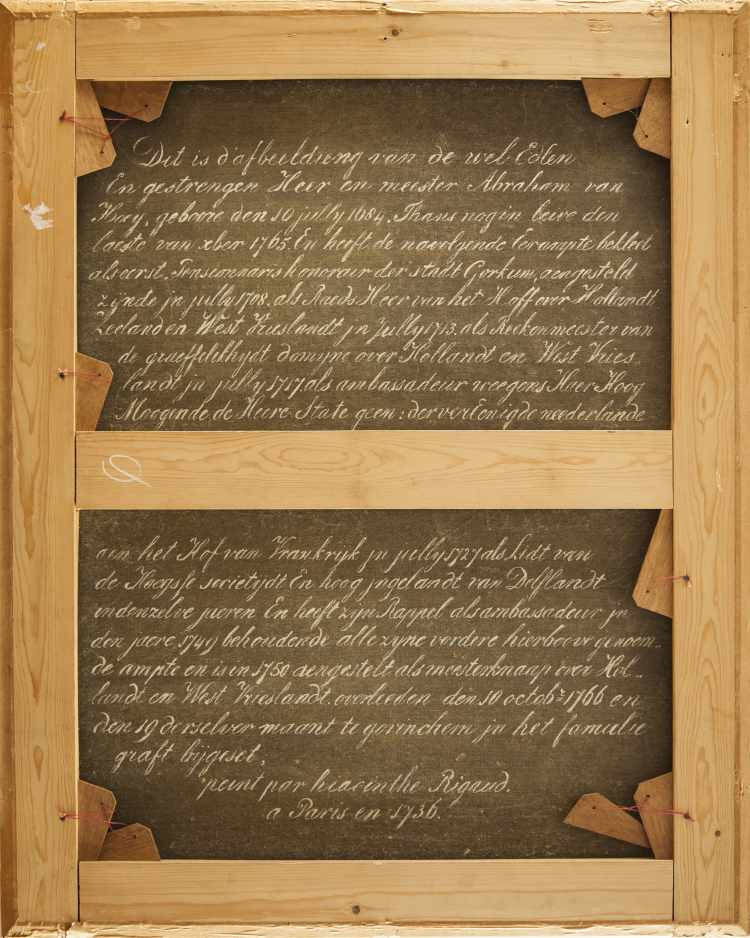 Dit is d'afbeeldinng van de wel Edlen
En gestrengen Heer en meester Abraham van
Hoey, geboore den 10 jully 1684. Thans nog in leive den
laeste van xber 1765. En heeft de navolgende Eerampte bekleed
als eerst. Pensionnaris honorair der stadt Gorkum, aengesteld
zijnde jn jully 1708, als Raeds Heer van het Hoff over Hollandt
Zeeland en West Vrieslandt jn Jully 1713. als Reekenmeester van
de graeffelikhydt domyne over Hollandt en West Vries
landt jn jully 1717 als ambassadeur weegens Haer Hoog
Moogende de Heere State geen: der verEenigde neederlande
aen het Hof van Vrankrijk jn jully 1727 als Lidt van
de Haegse societydt En hoog jngelandt van Delflandt
in denzelve jaeren En heeft zijn Rappel als ambassadeur jn
den jaere 1749 behoudende alle zyne verdere hierboove genoem-
de ampte en is in 1750 aengestelt als meesterknaap over Hol-
landt en West Vrieslandt. overleeden den 10 octob.r 1766 en
den 19 derselver maant te gorinchem jn het famielie
graft bijgeset,
peint par hiacinthe Rigaud.
a Paris en 1736.